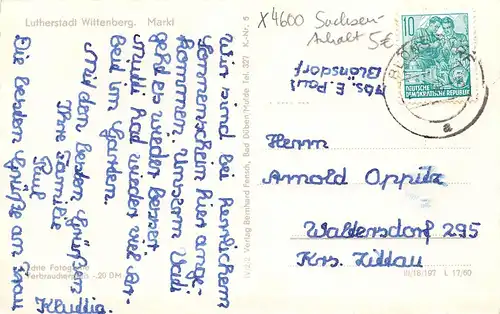 Lutherstadt Wittenberg. Markt
X4600 Sachsen-
Anhalt 5€
10
DEUTSCHE
DEMOKRATISCHE REPUBLIK
a
Abs. E. Paul
Blönsdorf
Wir sind bei herrlichem
Sonnenschein hier ange-
kommen. Unserm Vadi
geht es wieder besser.
Mutti hat wieder viel Ar-
beit im Garten.
Mit den besten Grüßen
Ihre Familie
Paul
Die besten Grüße an Frau
Herrn
Arnold Oppitz
Waltersdorf 295
Krs. Zittau
III/18/197 L 17/60
Verlag Bernhard Fensch, Bad Düben/Mulde Tel. 321 K.-Nr. 5
Echte Fotografie
Verbraucherpreis -.20 DM